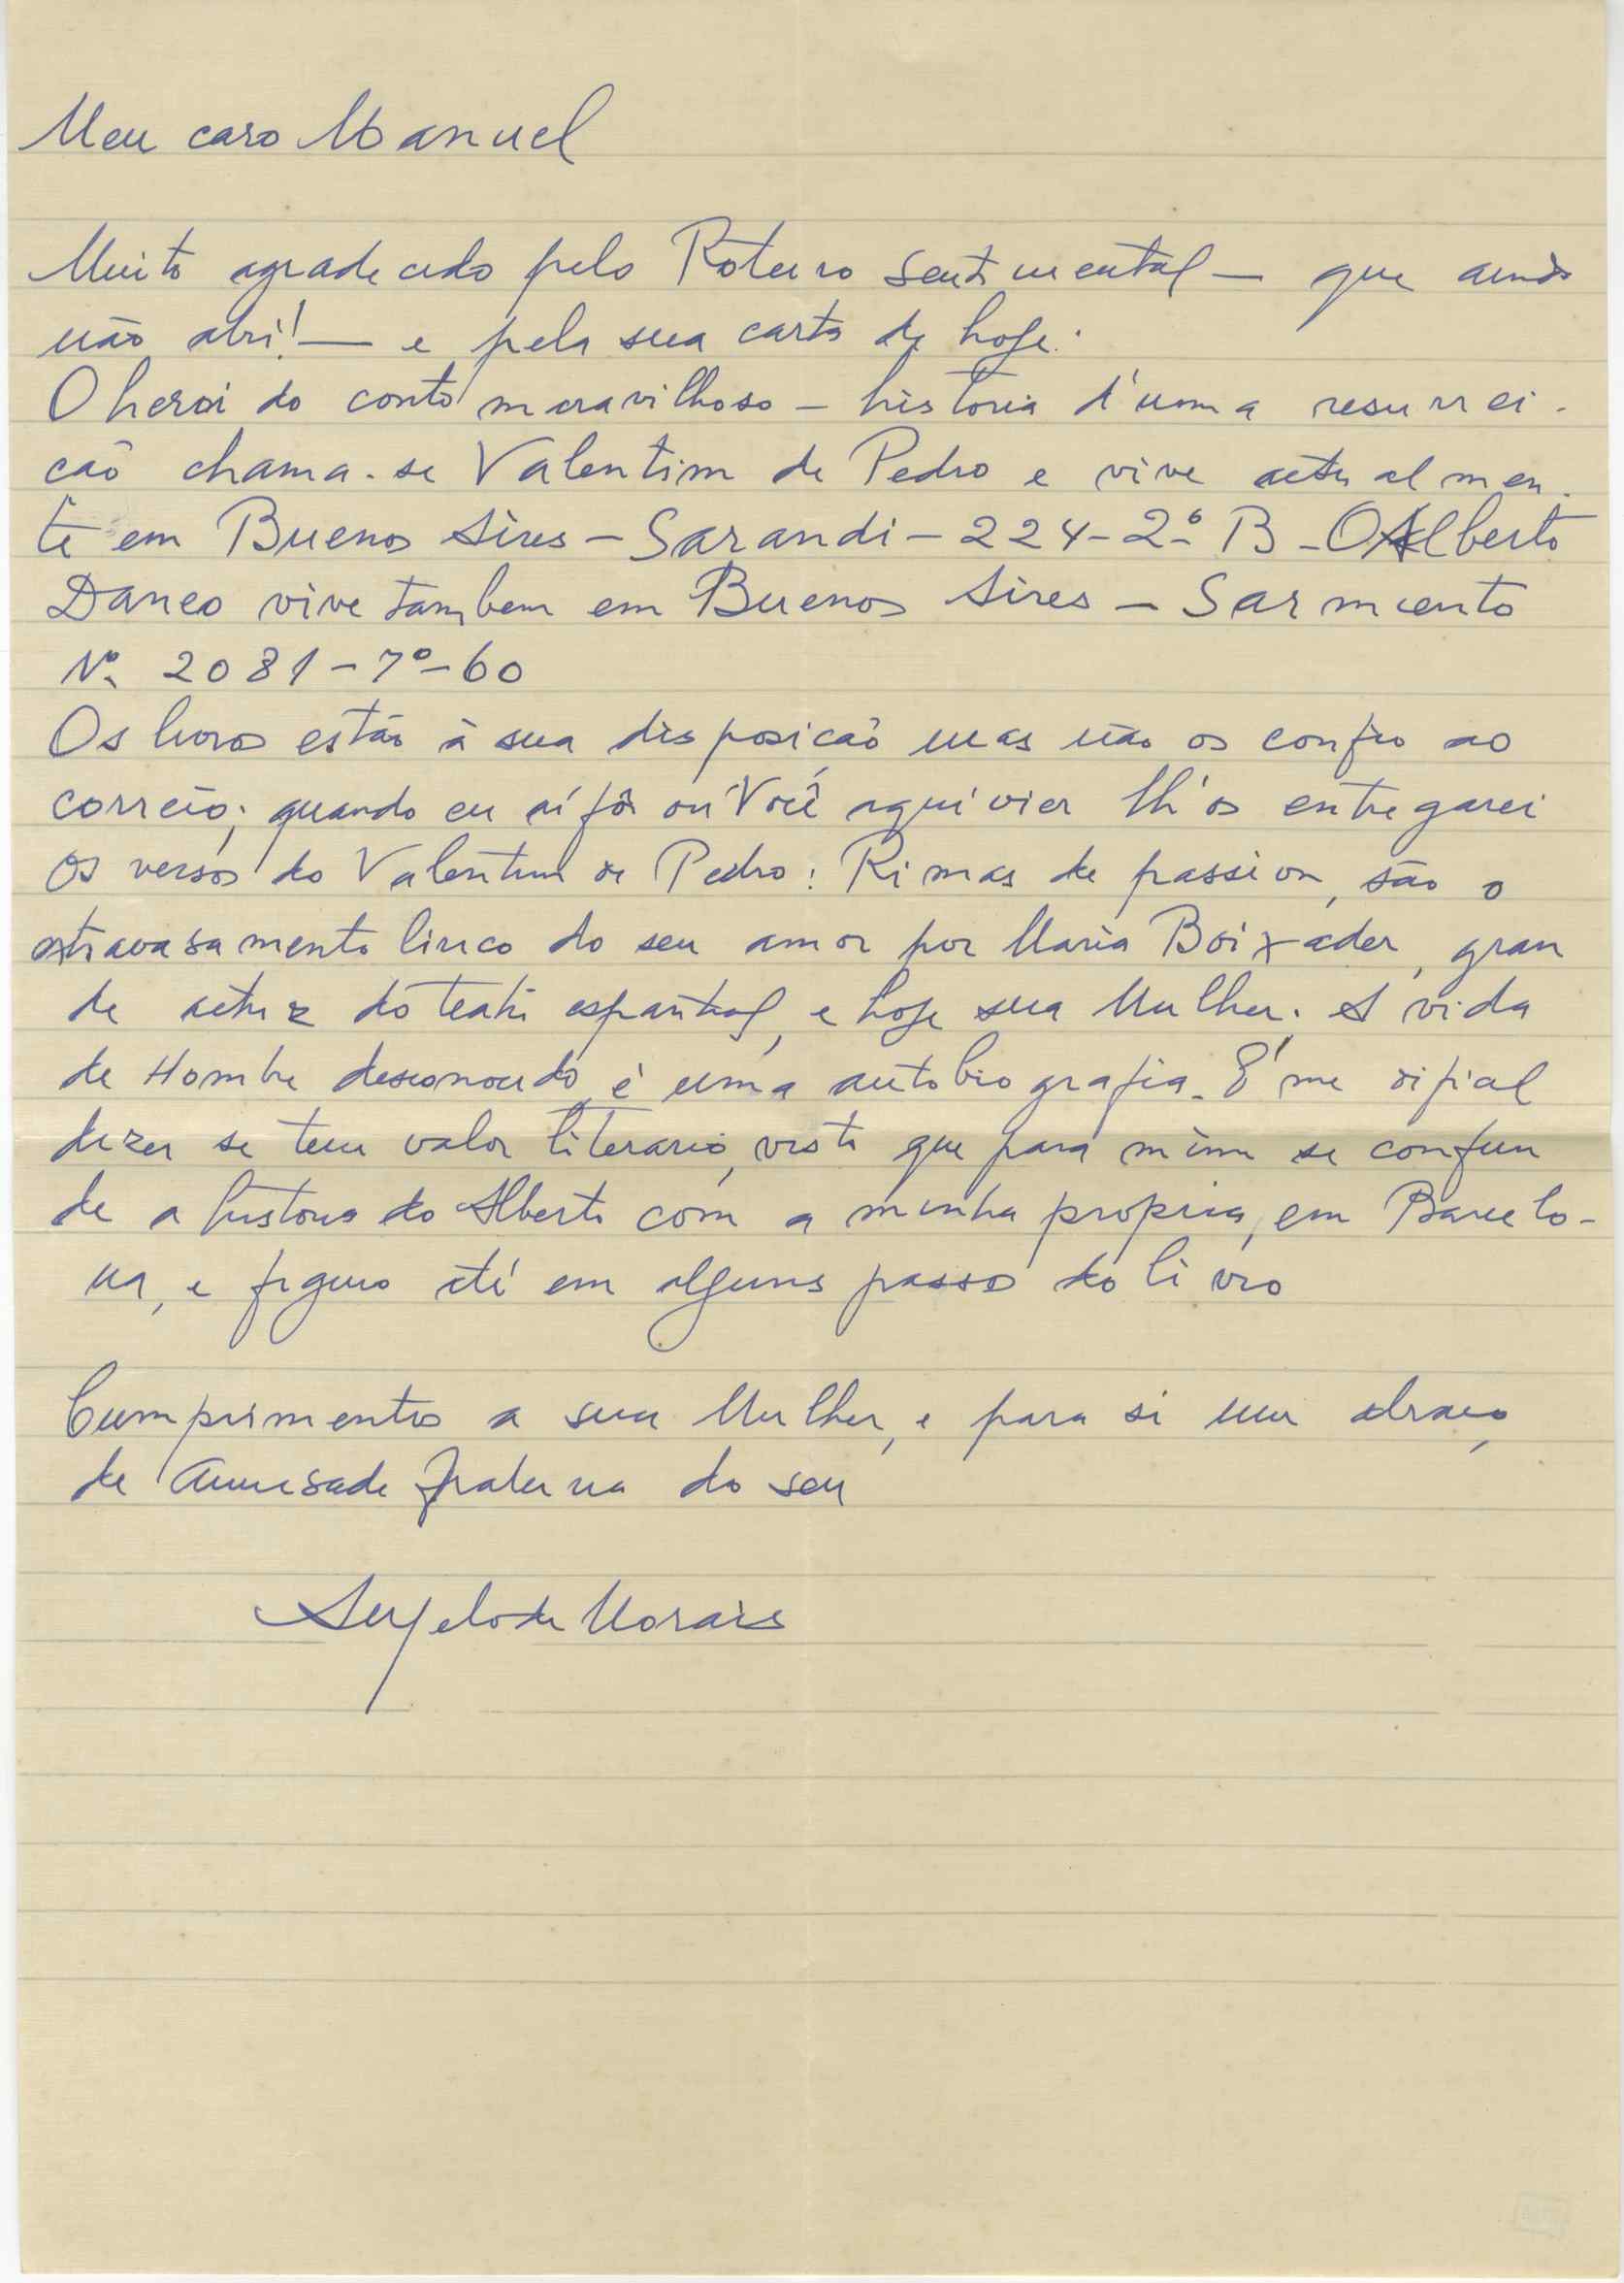 Meu caro Manuel
Muito agradecido pelo Roteiro Sentimental — que ainda
não abri! — e pela sua carta de hoje.
O heroi do conto maravilhoso — historia d'uma resurrei-
cão chama-se Valentim de Pedro e vive actualmen-
te em Buenos Aires — Sarandi — 224 - 2º B - O Alberto
Daneo vive tambem em Buenos Aires — Sarmiento
Nº 2081 - 7º - 60
Os livros estão à sua disposicão mas não os confio ao
correio; quando eu aí fôr ou Você aqui vier lh'os entregarei
Os versos do Valentim de Pedro: Rimas de passion, são o
extravasamento lirico do seu amor por Maria Boixader, gran
de actriz do teatro espanhol, e hoje sua Mulher. A vida
de Hombre desconocido, é uma autobiografia. É me dificil
dizer se tem valor literario, visto que para mim se confun
de a historia do Alberto com a minha propria, em Barcelo-
na, e figuro até em alguns passos do livro
Cumprimentos a sua Mulher, e para si um abraço
de Amisade fraterna do seu
Angelo de Morais